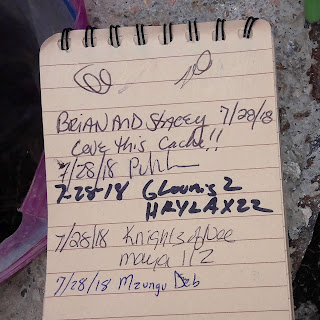 BRIAN AND STACEY 7/28/18
Love this Cache!!
7/28/18
7-28-18
HRYLAX22
7/28/18 Knights
maya 112
7/28/18 Mzungu Deb